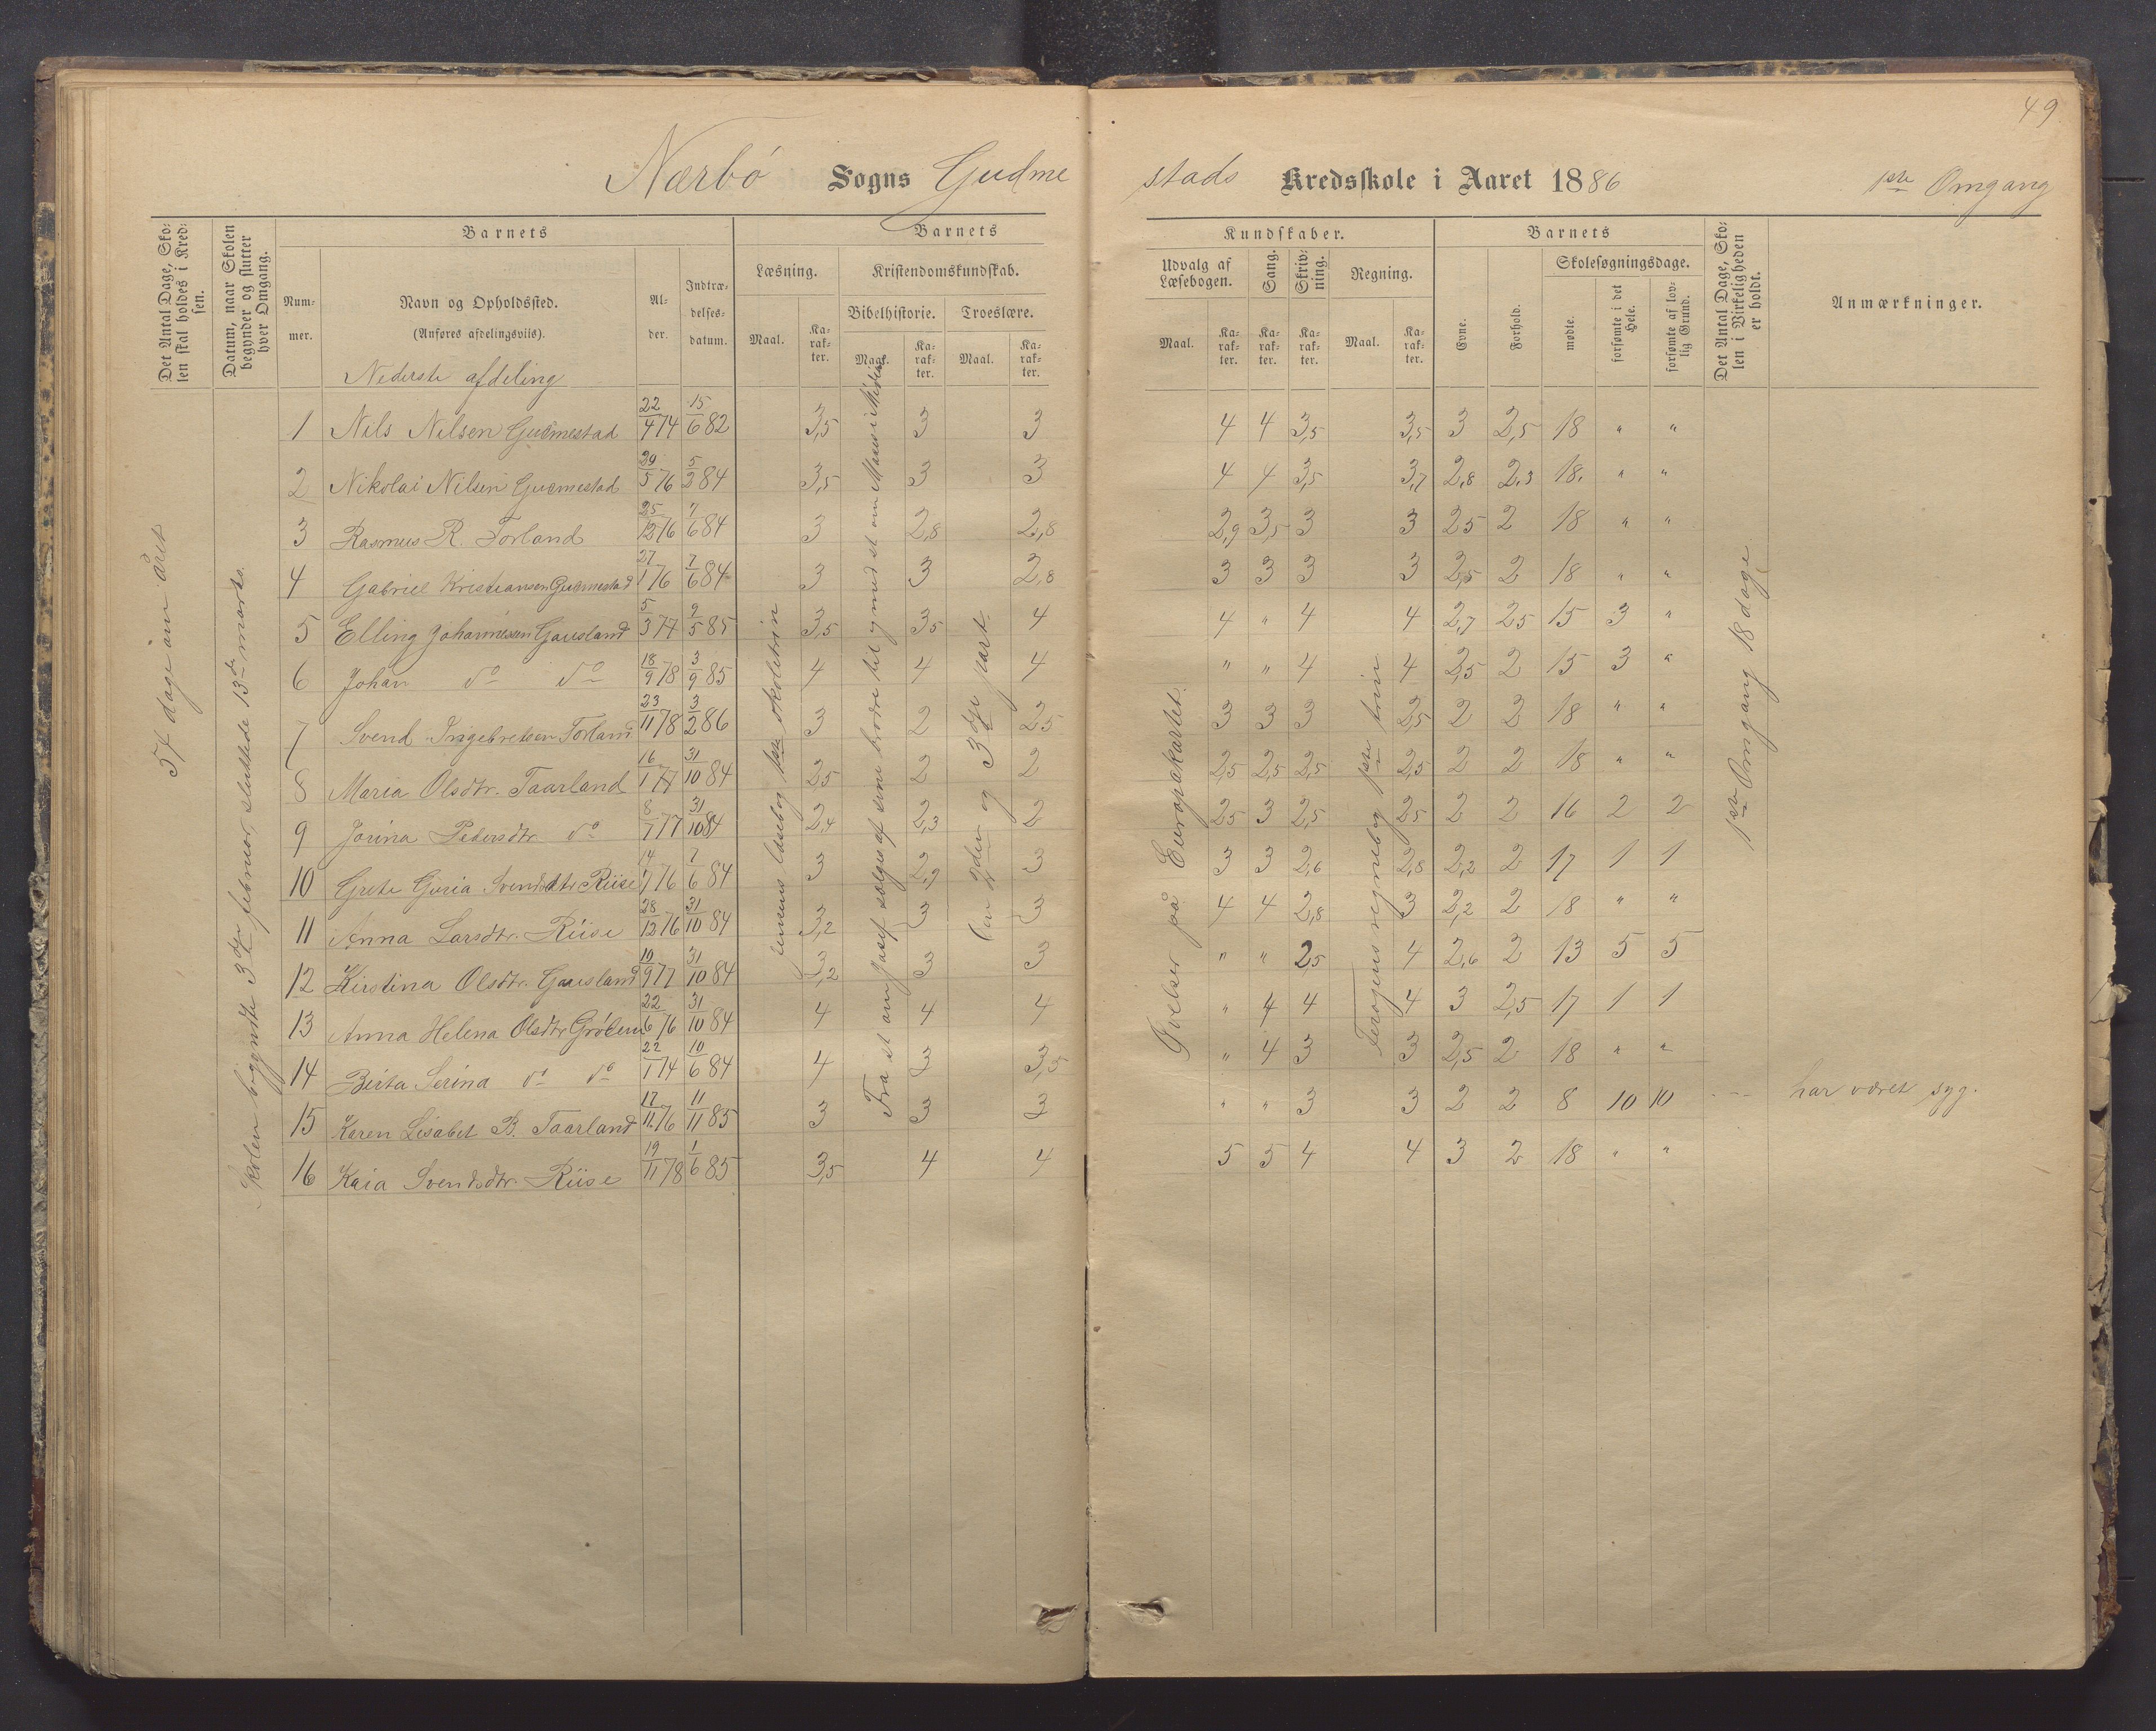 49
Nærbø Sogns Gudme stads Kredsskole i Aaret 1886 1ste Omgang
Det Antal Dage, Sko-
len skal holdes i Kred-
sen.
Datum, naar Skolen
begynder og slutter
hver Omgang.
Barnets
Num-
mer.
Navn og Opholdssted.
(Anføres afdelingsviis).
Al-
der.
Indtræ-
delses-
datum.
Barnets
Læsning.
Kristendomskundskab.
Bibelhistorie. Troeslære.
Maal.
Ka-
rak-
ter.
Maal.
Ka-
rak-
ter.
Maal.
Ka-
rak-
ter.
Kundskaber.
Udvalg af
Læsebogen.
Sang.
Skriv-
ning.
Regning.
Maal.
Ka-
rak-
ter.
Ka-
rak-
ter.
Ka-
rak-
ter.
Maal.
Ka-
rak-
ter.
Barnets
Evne.
Forhold.
Skolesøgningsdage.
mødte.
forsømte i det
Hele.
forsømte af lov-
lig Grund.
Det Antal Dage, Sko-
len i Virkeligheden
er holdt.
Anmærkninger.
Nederste afdeling
1 Nils Nilsen Gudmestad 22/4 74 15/6 82 3,5 3 3 4 4 3,5 3,5 3 2,5 18 " "
2 Nikolai Nilsen Gudmestad 29/5 76 5/2 84 3,5 3 3 4 4 3,5 3,7 2,8 2,3 18. " "
3 Rasmus R. Torland 25/12 76 7/6 84 3 2,8 2,8 2,9 3,5 3 3 25 2 18 " "
4 Gabriel Kristiansen Gudmestad 27/1 76 7/6 84 3 3 2,8 3 3 3 3 2,5 2 18 " "
5 Elling Johannesen Gausland 5/3 77 9/5 85 3,5 35 4 4 " 4 4 2,7 25 15 3 "
6 Johan do do 18/9 78 3/9 85 4 4 4 " " 4 4 2,5 2 15 3 "
7 Svend Ingebretsen Torland 23/11 78 3/2 86 3 2 25 3 3 3 2,5 2 2 18 " "
8 Maria Olsdtr. Taarland 16/1 77 31/10 84 2,5 2 2 2,5 2,5 2,5 2,5 2 2 18 " "
9 Jorina Pedersdtr. do 8/7 77 31/10 84 2,4 2,3 2 25 3 2,5 25 2 2 16 2 2
10 Grete Guria Svendsdtr Riise 14/7 76 7/6 84 3 2,9 3 3 3 2,6 2,8 2,2 2 17 1 1
11 Anna Larsdtr. Riise 28/12 76 31/10 84 3,2 3 3 4 4 2,8 3 2,2 2 18 " "
12 Kirstina Olsdtr. Gausland 10/9 77 31/10 84 3,2 3 3 " " 2,5 4 2,6 2 13 5 5
13 Anna Helena Olsdtr 22/6 76 31/10 84 4 4 4 " 4 4 4 3 2,5 17 1 1
14 Berta Serina do do 22/1 74 10/6 84 4 3 3,5 " 4 3 3 2,5 2 18 " "
15 Karen Lisabet B. Taarland 17/11 76 11/11 85 3 3 3 " " 3 3 2 2 8 10 10 --- har været syg.
16 Kaia Svendsdtr. Riise 19/11 78 1/6 85 3,5 4 4 5 5 4 4 3 2 18 " "
54 dage om året
Skolen begyndte 3die februar, sluttede 13de marts.
Jensens læsebog 1ste skoletrin
Fra st om Josef sælges af sine brødre til og med st om Moses i Midian
(en 2den og 3die part
Øvelser på Europakartet.
regnebog 1ste trin
1ste Omgang 18 dage